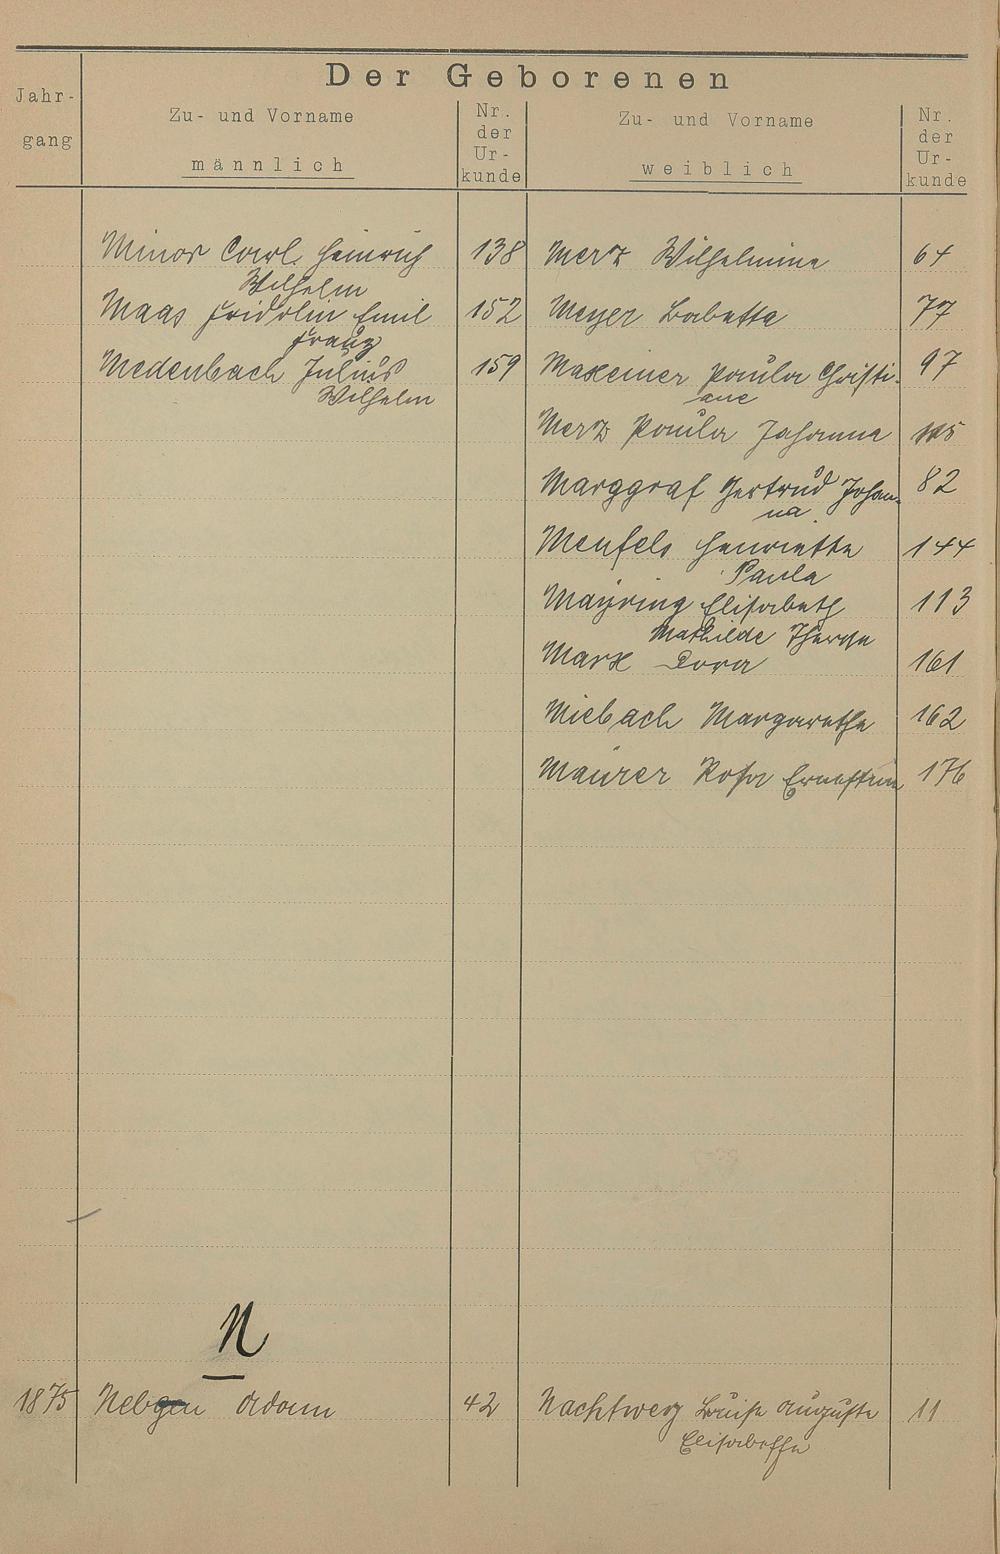 Der Geborenen
Jahr-
gang
Zu- und Vorname
männlich
Nr.
der
Ur-
kunde
Zu- und Vorname
weiblich
Nr.
der
Ur-
kunde
Minor Carl Heinrich 138 Merz Wilhelmine 64
Wilhelm
Maas Fridolin Emil 152 Meyer Babetta 77
Franz
Medenbach Julius 159 Maxeiner Paula Christi- 97
Wilhelm ane
Merz Paula Johanna
Marggraf Gertrud Johan- 82
na
Menfels Henriette 144
Paula
Mayring Elisabeth 113
Mathilde Therese
Marx Dora 161
Miebach Margarethe 162
Maurer Rosa Ernestine 176
N
1875 Nebgen Adam 42 Nachtweÿ Luise Auguste 11
Elisabetha